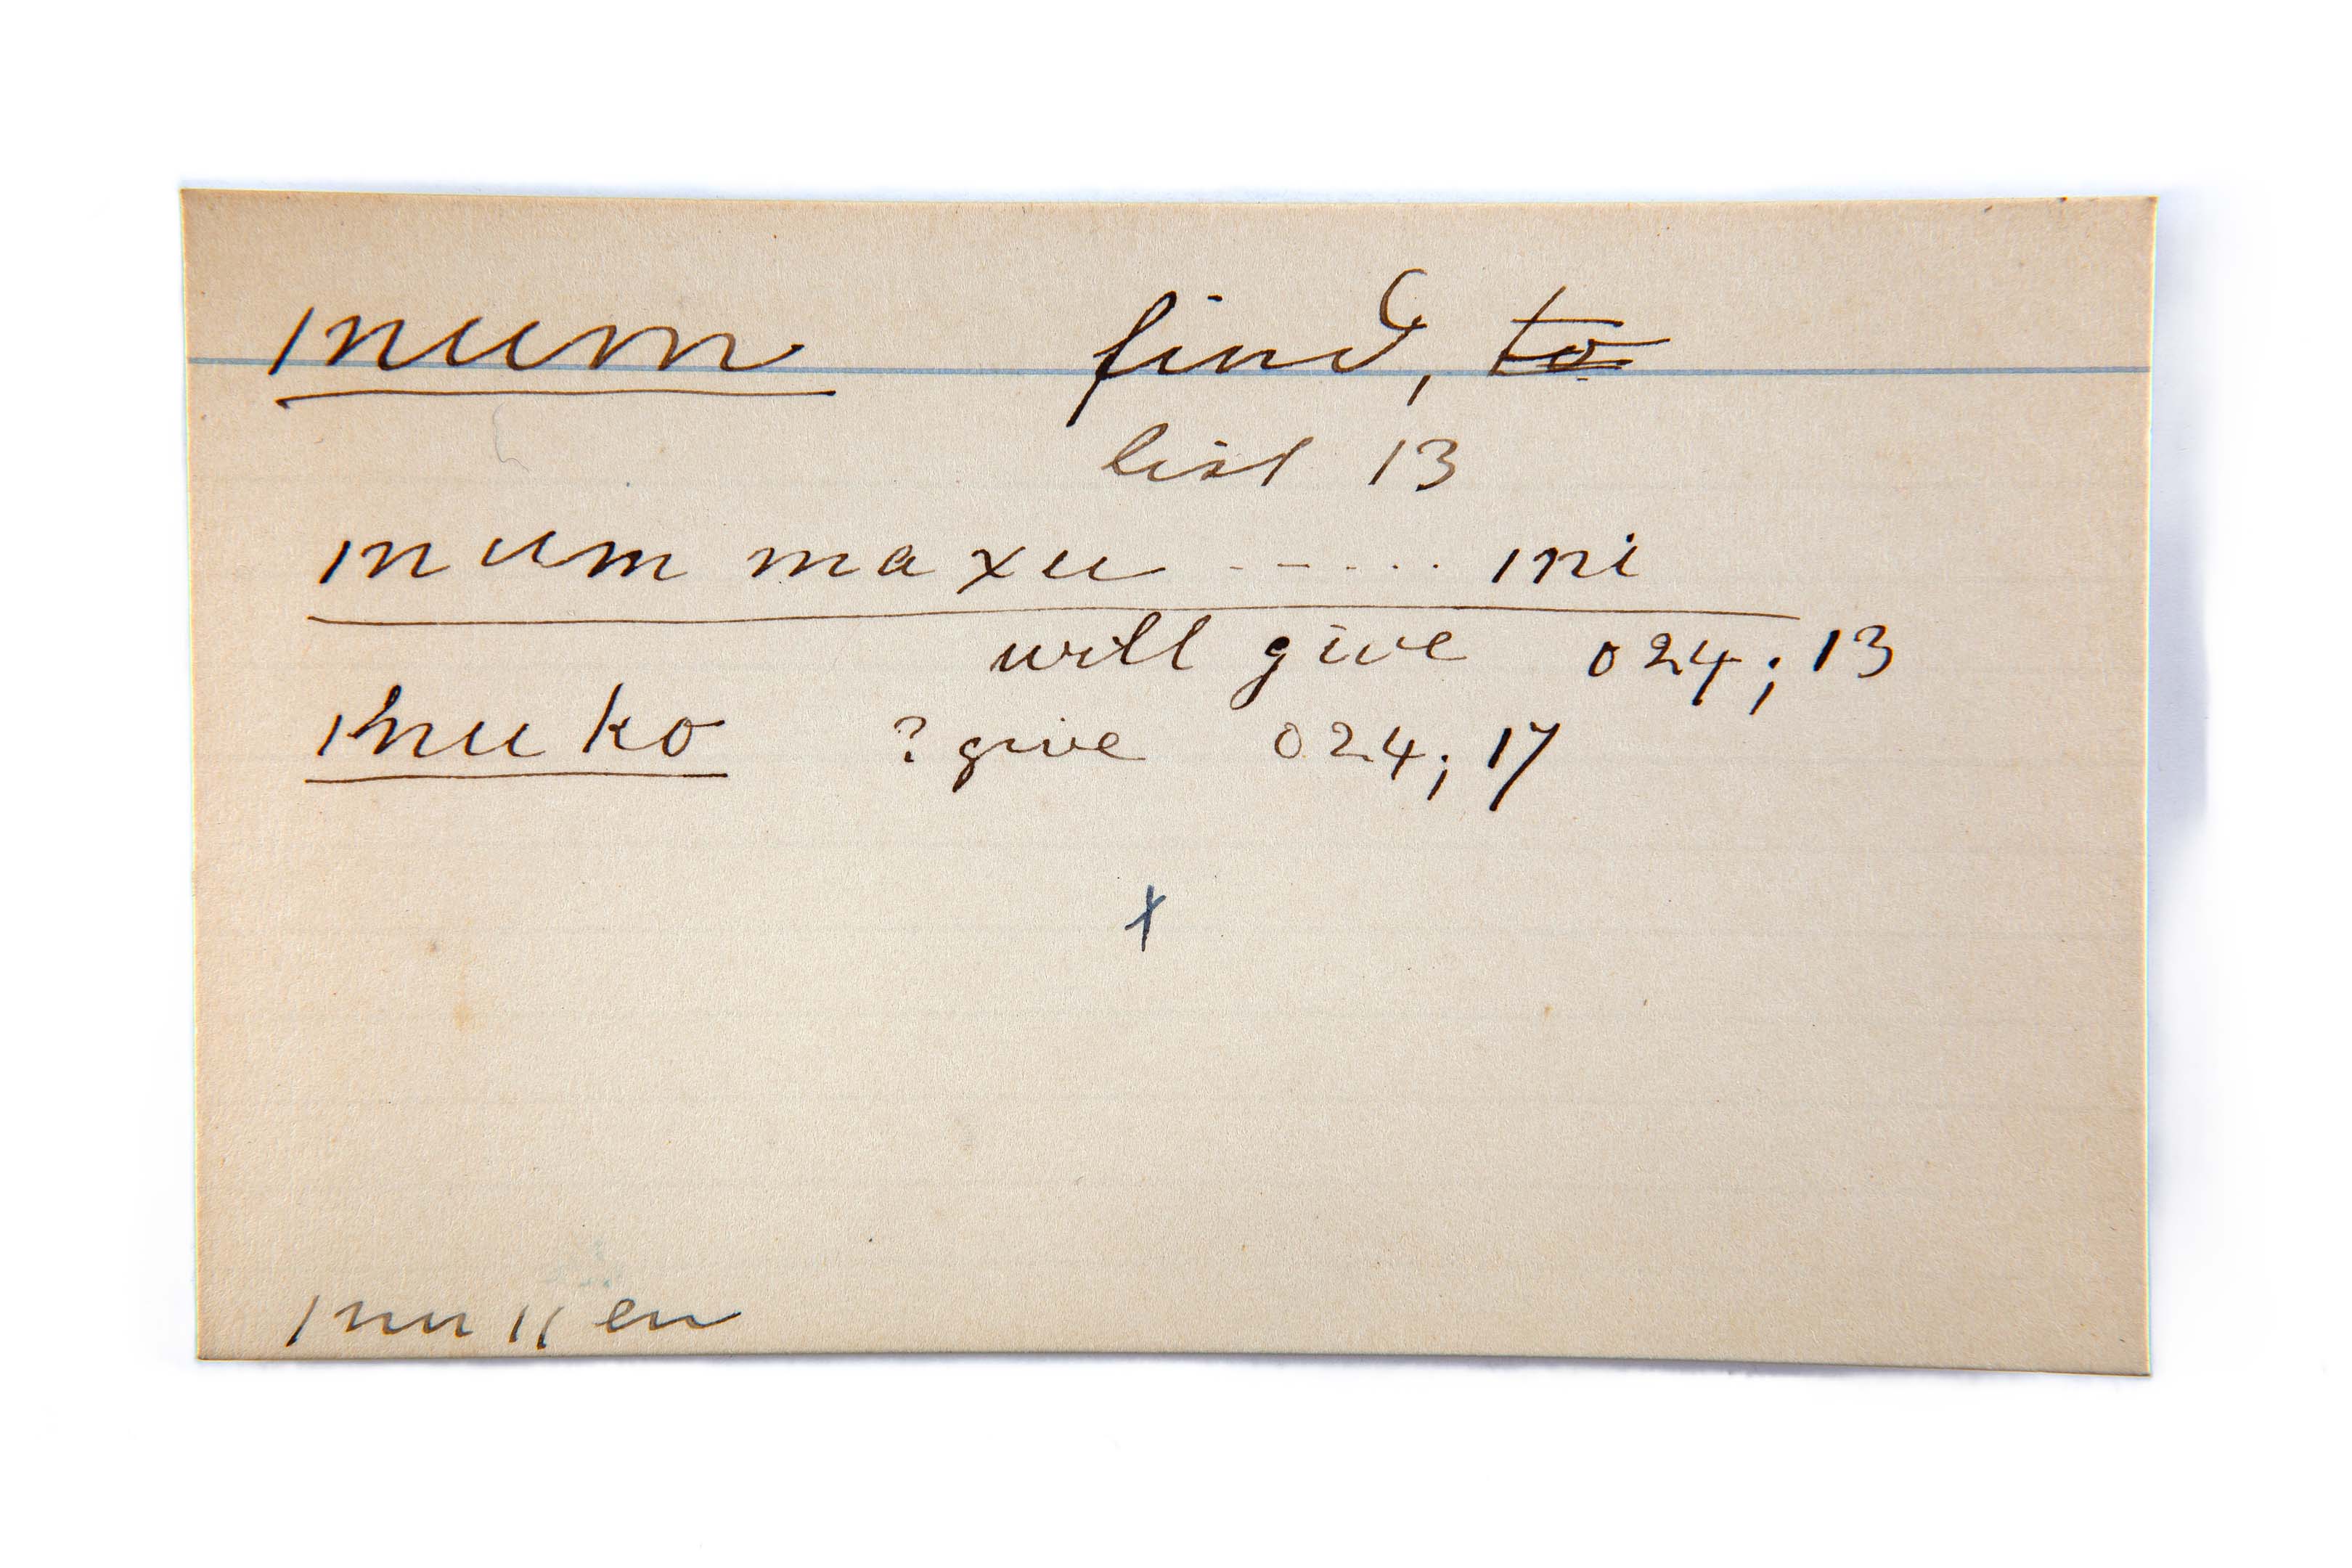 |num find, to
list 13
|num maxu ------ |ni
will give 024; 13
|hnu ko ? give 024; 17
x
|nu ||en